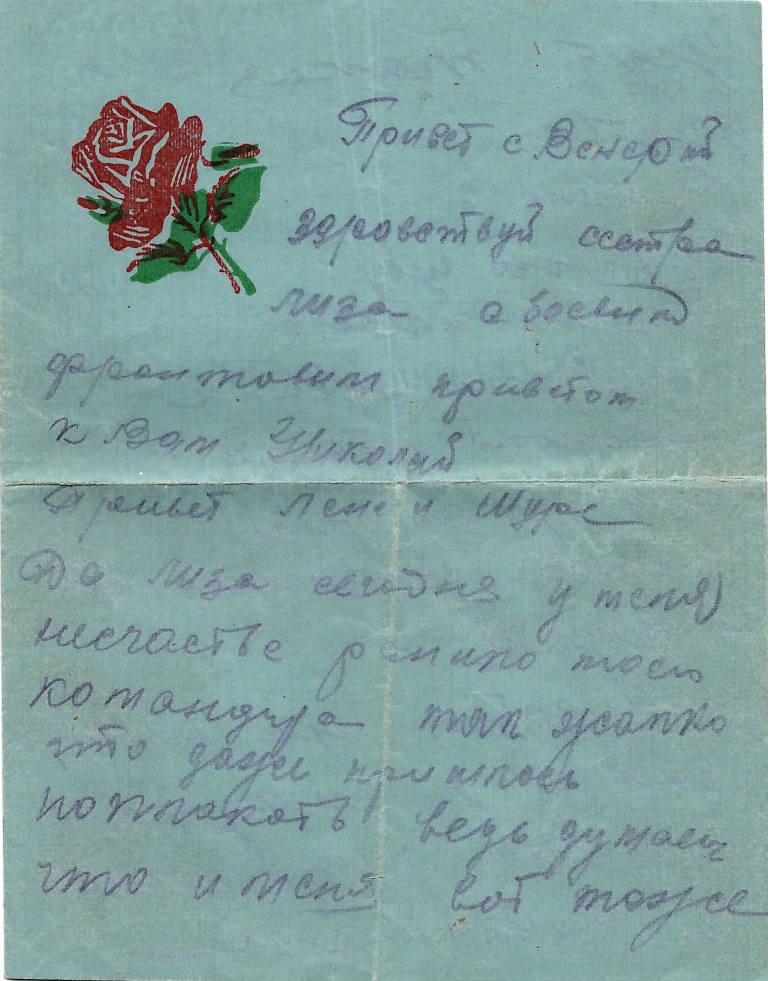 Привет с Венгрий
здравствуй сестра
лиза с боевим
фронтовим приветом
к Вам Николай
Привет Лене и Шуре
Да лиза сегодня у меня
несчастье ранило моего
командира так жалко
что даже пришлось
поплакать ведь думаеш
что и меня вот тоже